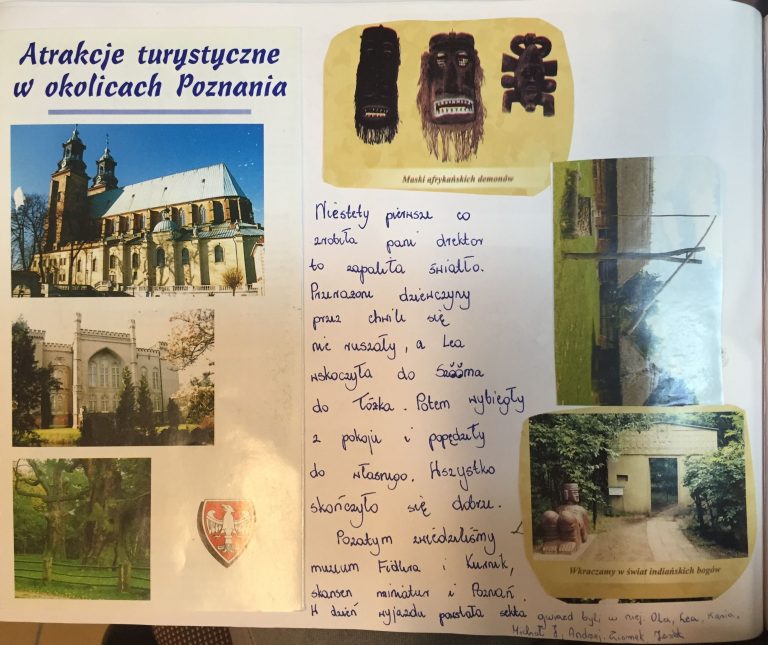 Atrakcje turystyczne
w okolicach Poznania
Maski afrykańskich demonów
Niestety pierwsze co
zrobiła pani drektor
to zapaliła światło.
Przerażone dziewczyny
przez chwile się
nie ruszały, a Lea
wskoczyła do
do łóżka. Potem wybiegły
z pokoju i popędziły
do własnego. Wszystko
skończyło się dobrze.
Pozatym zwiedziliśmy
muzeum Fidlera i Kurnik,
skansen miniatur i Poznań.
W dzień wyjazdu powstała sekta gwiazd byli w niej. Ola, Lea, Kasia,
Michał, Andrzej, Ziomek Jasiek
Wkraczamy w świat indiańskich bogów